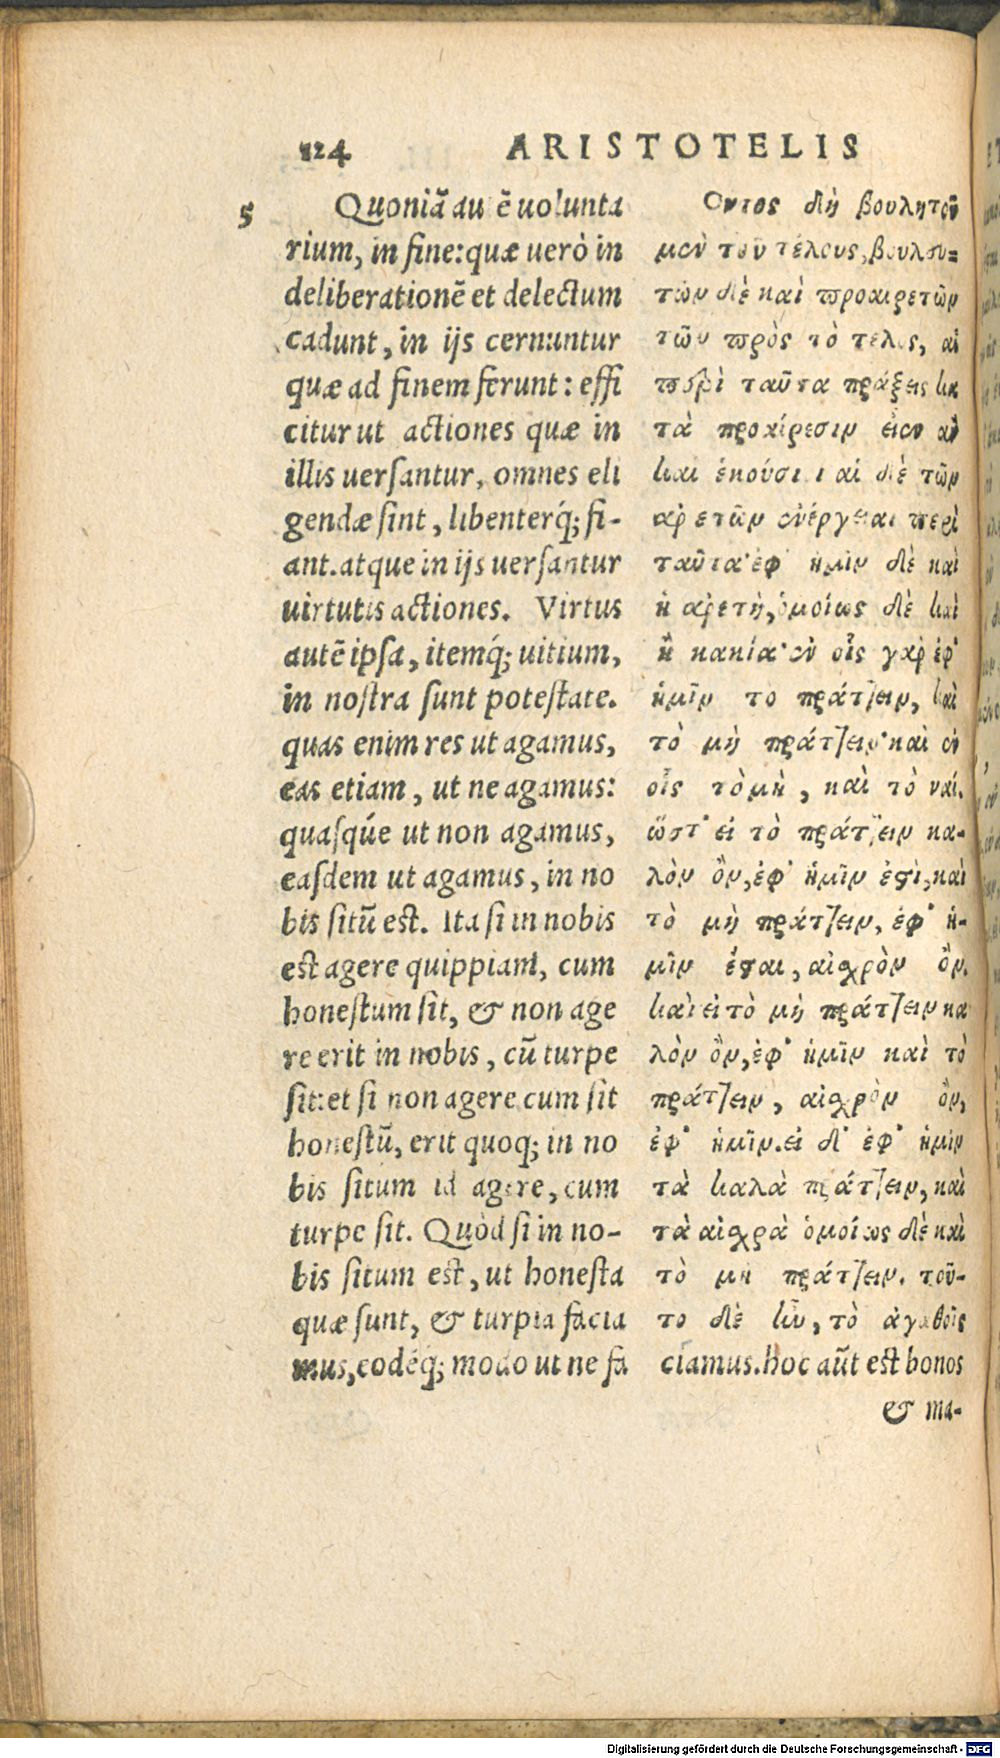 124 ARISTOTELIS
5 Quoniã au ẽ uolunta
rium, in fine: quæ uerò in
deliberationẽ et delectum
cadunt, in ijs cernuntur
quæ ad finem ferunt: effi
citur ut actiones quæ in
illis uersantur, omnes eli
gendæ sint, libenterq́; fi-
ant. atque in ijs uersantur
uirtutis actiones. Virtus
autẽ ipsa, itemq́; uitium,
in nostra sunt potestate.
quas enim res ut agamus,
eas etiam, ut ne agamus:
quasq́ue ut non agamus,
easdem ut agamus, in no
bis sitũ est. Ita si in nobis
est agere quippiam, cum
honestum sit, & non age
re erit in nobis, cũ turpe
sit: et si non agere cum sit
honestũ, erit quoq; in no
bis situm id agere, cum
turpe sit. Quòd si in no-
bis situm est, ut honesta
quæ sunt, & turpia facia
mus, eodẽq; modo ut ne fa
Οντος δὴ βουλητοῦ
μὲν τοῦ τέλους, βουλευ-
τῶν δὲ καὶ προαιρετῶν
τῶν πρὸς τὸ τέλος, αἱ
περὶ ταῦτα πράξεις κα
τὰ προαίρεσιν εἶεν ἂν
καὶ ἑκούσιοι αἱ δὲ τῶν
ἀρετῶν ἐνέργειαι περὶ
ταῦτα· ἐφ' ἡμῖν δὲ καὶ
ἡ ἀρετὴ, ὁμοίως δὲ καὶ
ἡ κακία· ἐν οἷς γὰρ ἐφ'
ἡμῖν το πράττειν, καὶ
τὸ μὴ πράττειν· καὶ ἐν
οἷς τὸ μὴ, καὶ τὸ ναί.
ὥστ' εἰ τὸ πράττειν κα-
λὸν ὂν, ἐφ' ἡμῖν ἐστὶ, καὶ
τὸ μὴ πράττειν, ἐφ' ἡ-
μῖν ἔσται, αἰσχρὸν ὂν.
καὶ εἰ τὸ μὴ πράττειν κα
λὸν ὂν, ἐφ' ἡμῖν καὶ τὸ
πράττειν, αἰσχρὸν ὂν,
ἐφ' ἡμῖν. εἰ δ' ἐφ' ἡμῖν
τὰ καλὰ πράττειν, καὶ
τὰ αἰσχρὰ ὁμοίως δὲ καὶ
τὸ μὴ πράττειν. τοῦ-
το δὲ ἦν, τὸ ἀγαθοῖς
ciamus. hoc aũt est bonos
& ma-
Digitalisierung gefördert durch die Deutsche Forschungsgemeinschaft - DFG